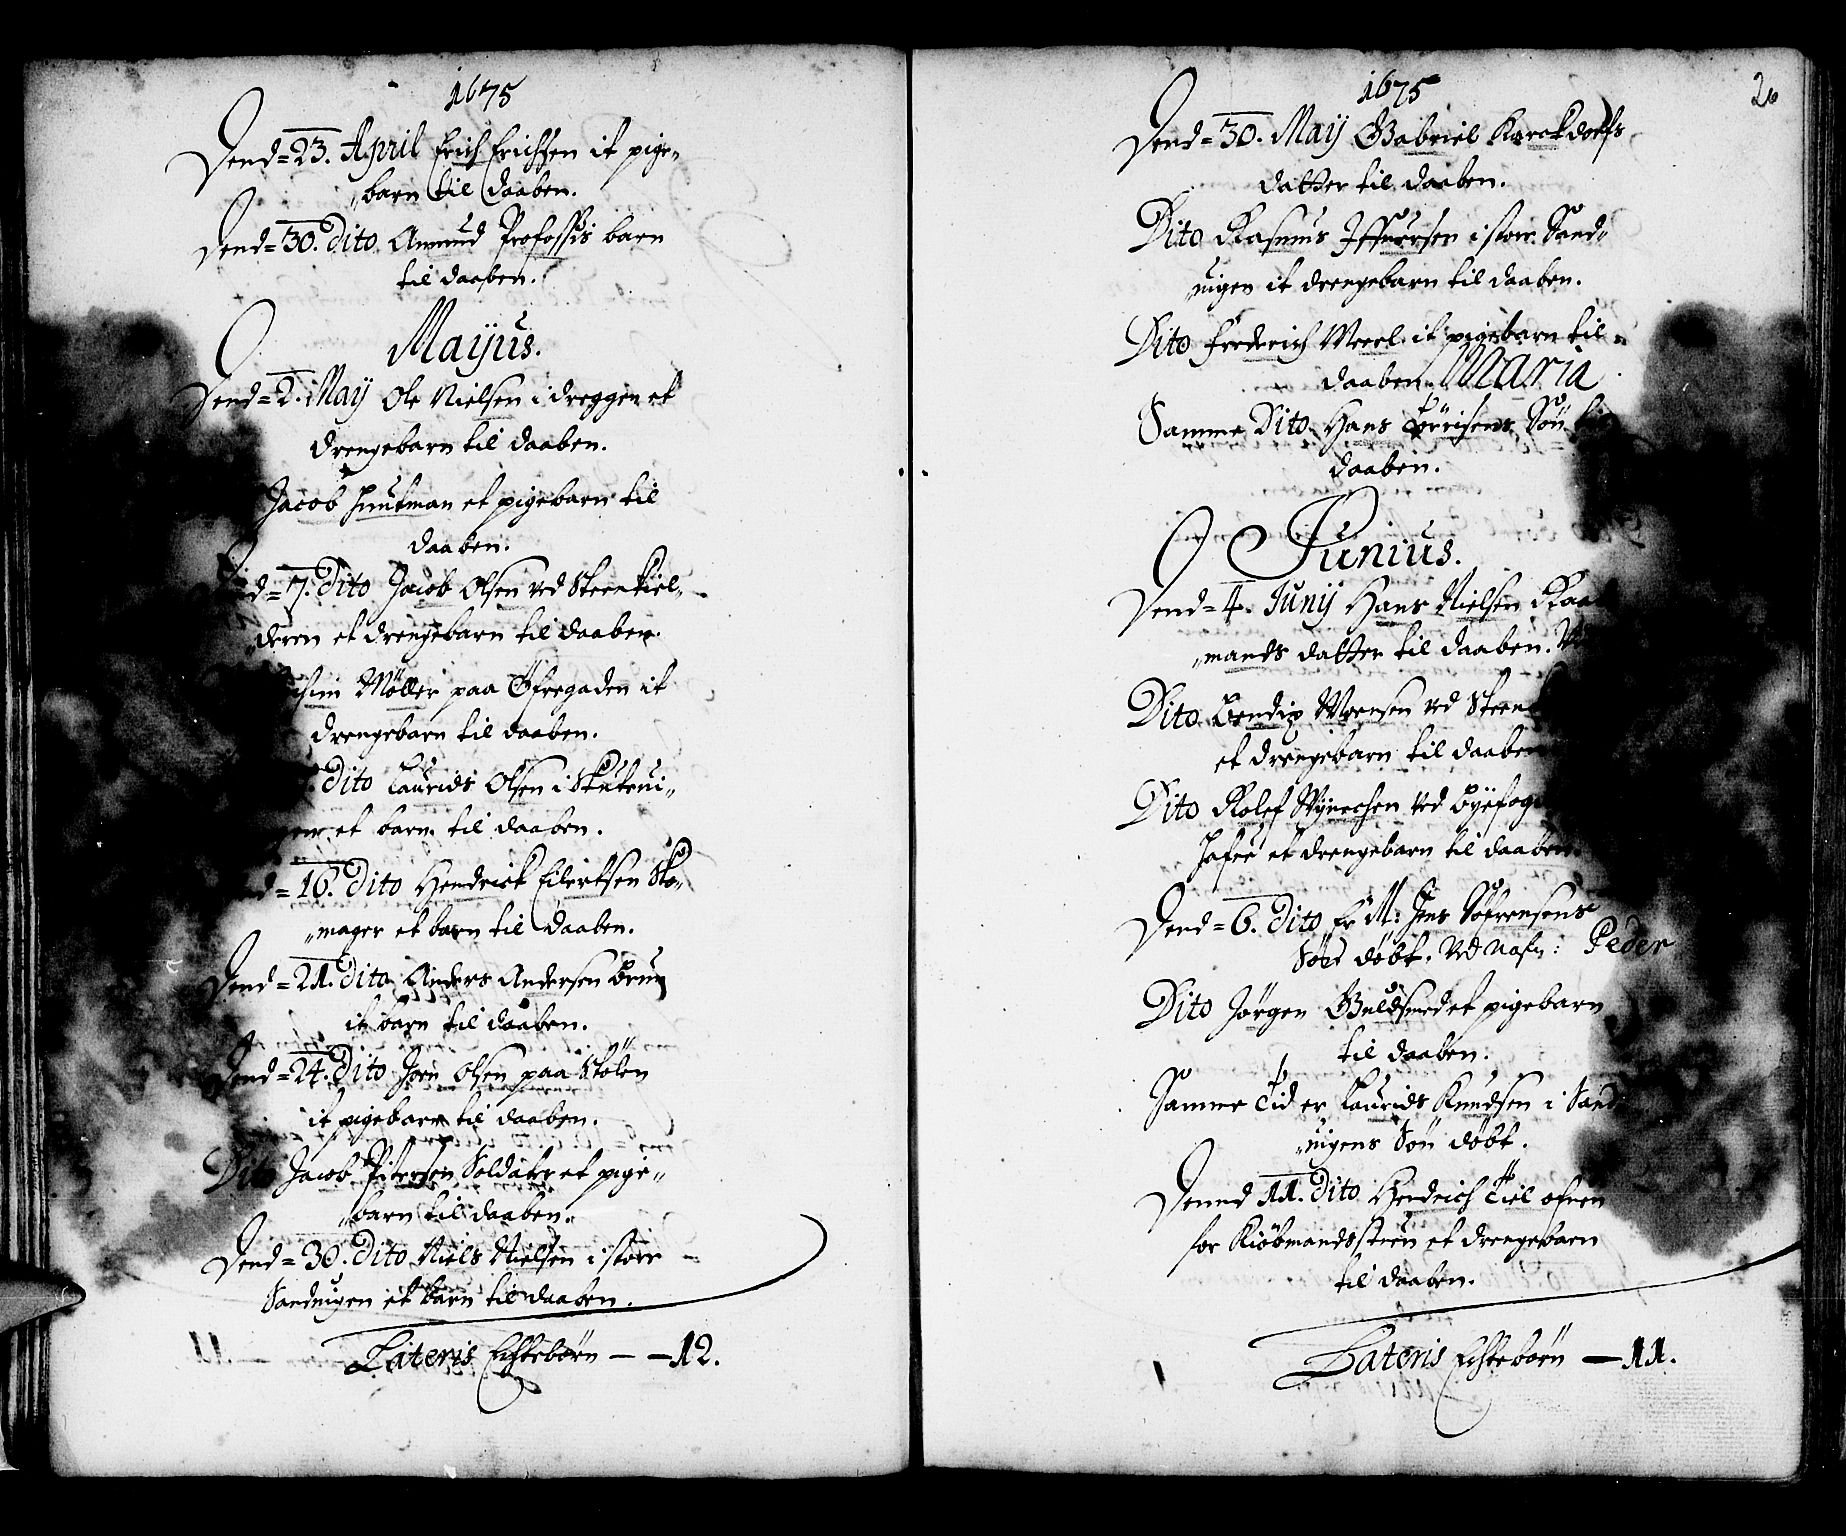 1675
Dend=23. April Erich Erichsen it pige„
„barn til daaben.
Dend=30. dito. Ammud Profossis barn
til daaben.
Mayus.
Dend=2. May Ole Nielsen i dreggen et
drengebarn til daaben.
Jacob Huutman et pigebarn til
daaben.
Dend=7. dito Jacob Olsen ved Steenkiel„
„deren et drengebarn til daaben.
Möller paa Öfregaden it
drengebarn til daaben.
dito Laurids Olsen i Skuteui„
gen et barn til daaben.
Dend=16. dito Hendrick Eilertsen Sko„
„mager et barn til daaben.
Dend=21. dito Anders Andersen Brun
it barn til daaben.
Dend=24. dito Jörn Olsen paa Stölen
it pigebarn til daaben.
Dito Jacob Pitersen Soldater et pige„
„barn til daaben.
Dend=30. dito Niels Nielsen i storr
Sanduigen et barn til daaben.
Lateris Echtebörn — —12.
1675
26
Dend=30. May Gabriel Karckdorfs
datter til daaben.
Dito Rasmus Iffuersen i storr Sand„
„uigen it drengebarn til daaben.
Dito Frederich Meerl it pigebarn til
daaben Maria
Samme Dito Hans Törrisens Sön til
daaben.
Junius.
Dend=4. Junij Hans Nielsen Raad
„mands datter til daaben.
Dito Bendix Moensen ved Steen
et drengebarn til daaben
Dito Rolef Wynechen ved Byefog
hafue et drengebarn til daaben.
Dend=6. dito Er M: Jens Söfrensens
Sön döbt. ved Nafn: Peder
Dito Jörgen Guldsmed et pigebarn
til daaben.
Samme Tid er Laurids Knudsen i Sand
„uigens Sön döbt.
Dennd 11. dito Hendrich Tiel ofren
for Kiöbmandsstuen et drengebarn
til daaben.
Lateris Echtebörn —11.